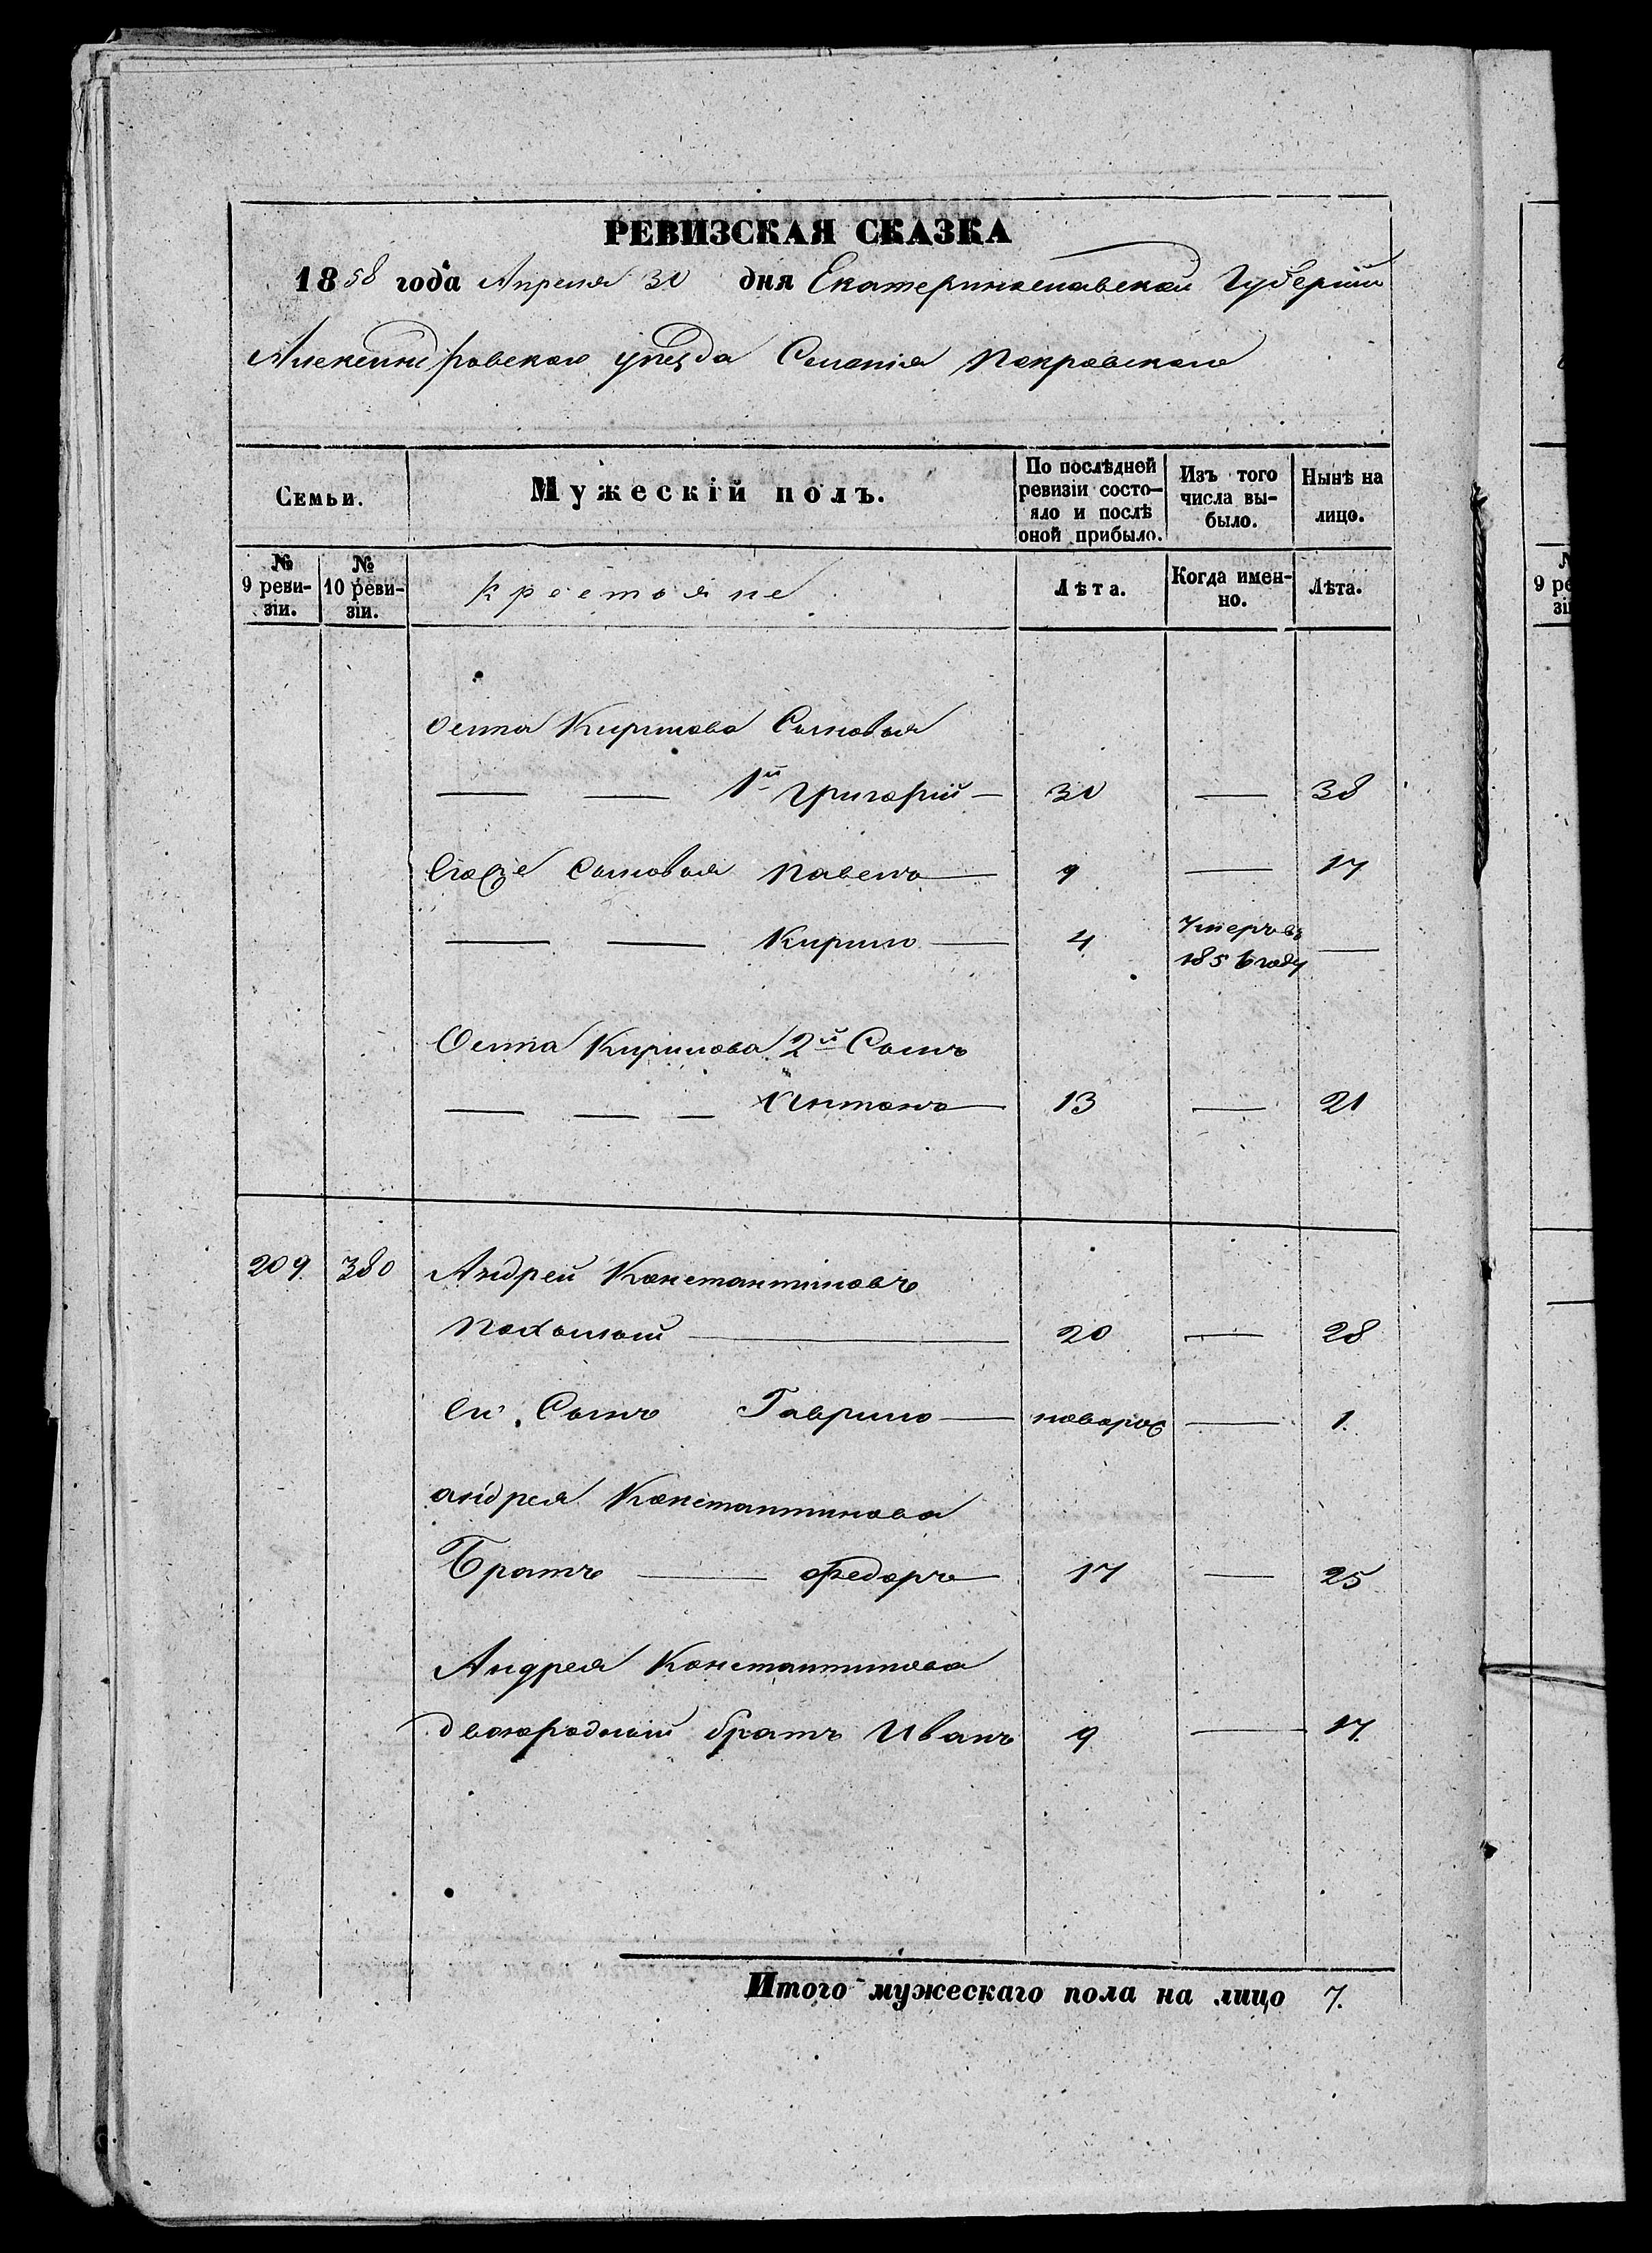 РЕВИЗСКАЯ СКАЗКА
1858 года Апреля 30 дня Екатеринославской Губерніи
Александровского уезда Селенія Покровского
Семьи.
Мужескій полъ.
По послѣдней ревизіи состояло и послѣ оной прибыло.
Изъ того числа выбыло.
Нынѣ на лицо.
№ 9 ревизіи.
№ 10 ревизіи.
Крестьяне
Лѣта.
Когда именно.
Лѣта.
Осипа Кирилова Сыновья
1й Григорій 30 38
Егоже Сыновья Павелъ 9 17
Кирило 4 Умеръ въ 1856 году
Осипа Кирилова 2й Сынъ
Антонъ 13 21
209 380 Андрей Константиновъ
20 28
Ег. Сынъ Гаврило новорож 1.
андрея Константинова
Братъ Федоръ 17 25
Андрея Константинова
двоюродный братъ Иванъ 9 17.
Итого мужескаго пола на лицо 7.
9 ре
зі